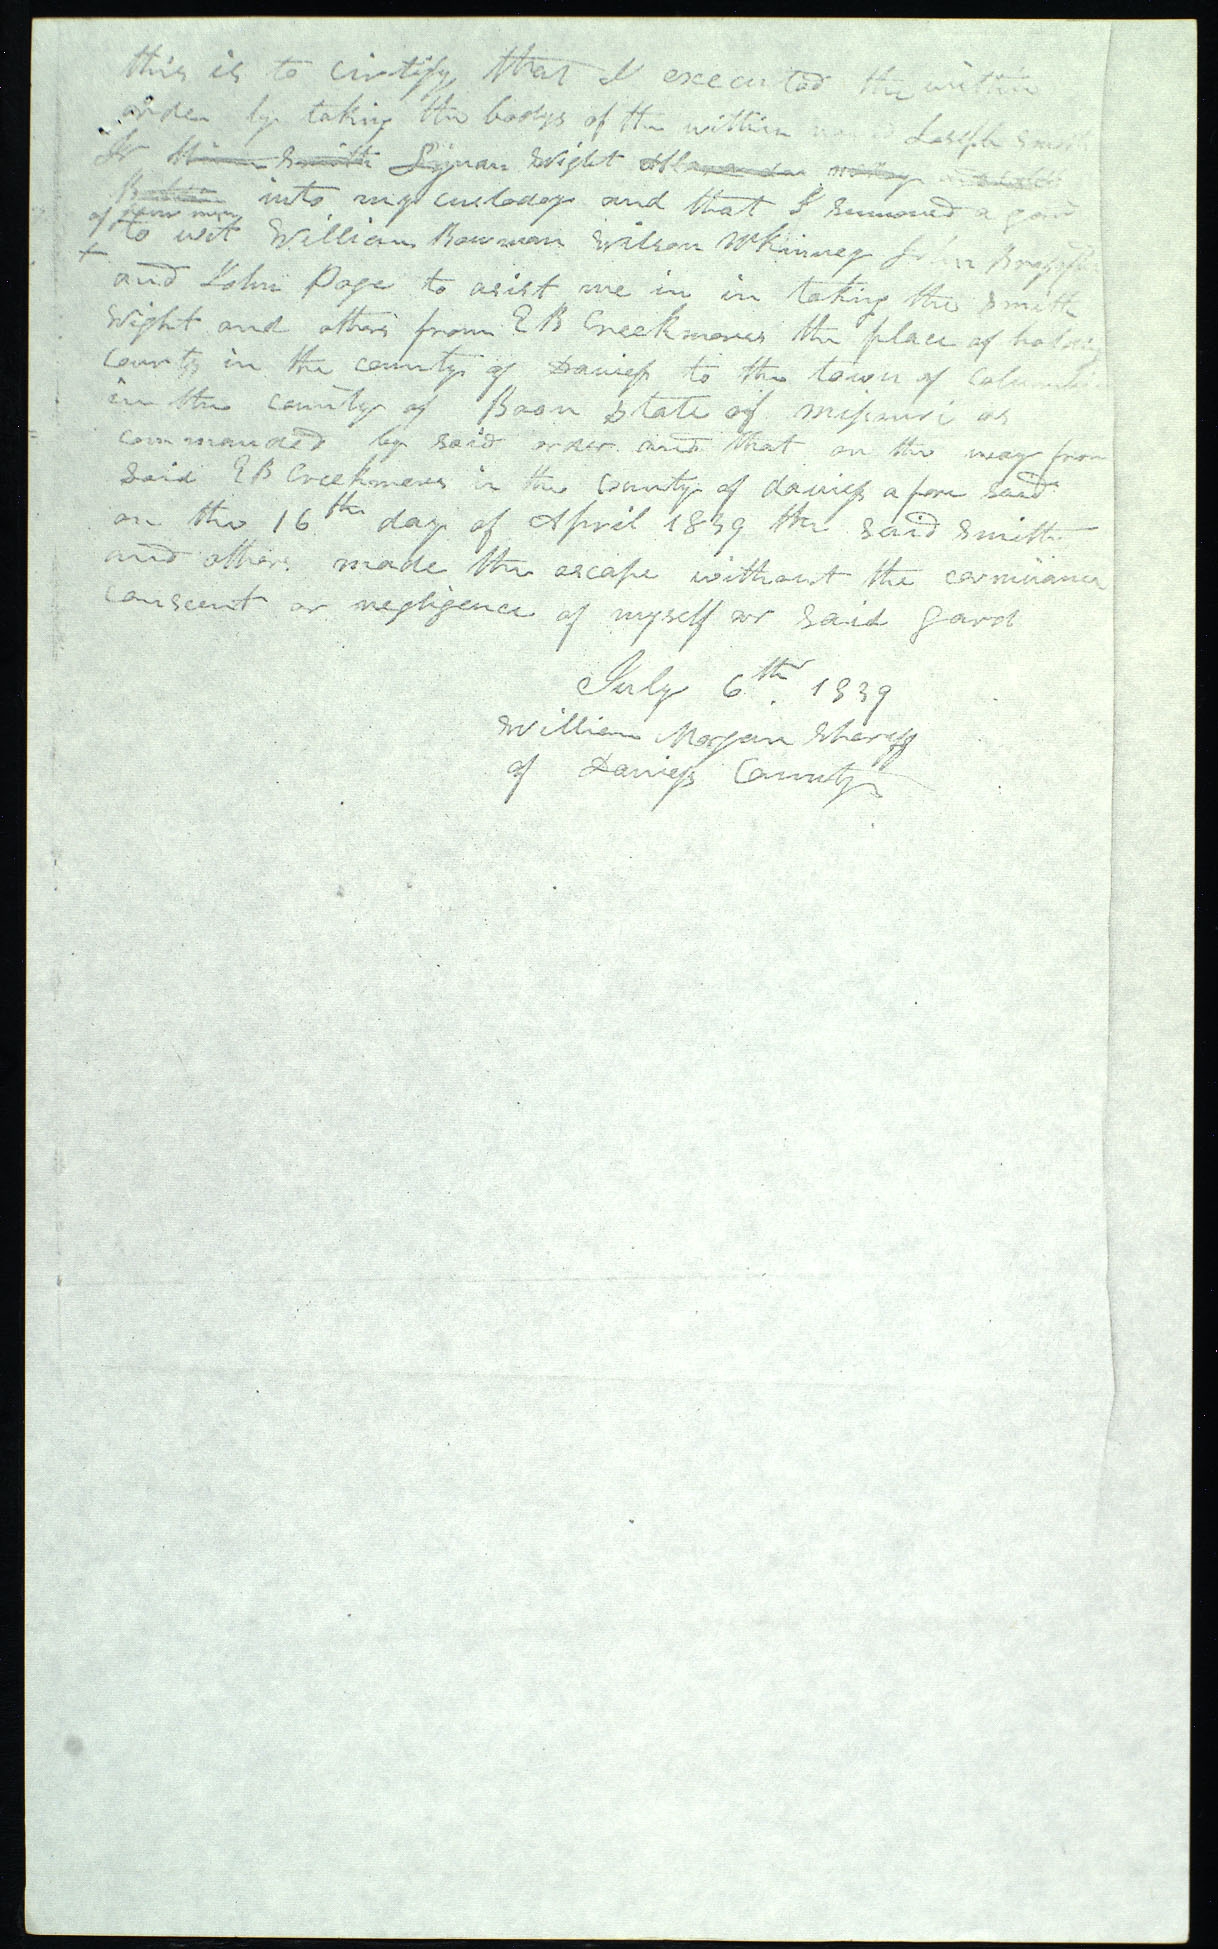 this is to cirtify that I executed the within
order by taking the bodys of the within named Joseph Smith
Jr Hiram Smith Lyman Wight Alaxander
into my custoday and that I sumoned a gard
of four men
to wit William Bowman Wilson Mkinney John Brassfield
and John Page to asist me in in taking the Smith
Wight and others from E B Creekmores the place of holding
Courts in the county of Daviess to the town of Columbia
in the county of Boon State of Missouri as
commanded by said order and that on the way from
Said E B Creekmores in the County of daviess afore Said
on the 16th day of April 1839 the said Smith
and others made the escape without the
Conscent or negligence of myself or said gard
July 6th 1839
William Morgan Shereff
of Daviess County